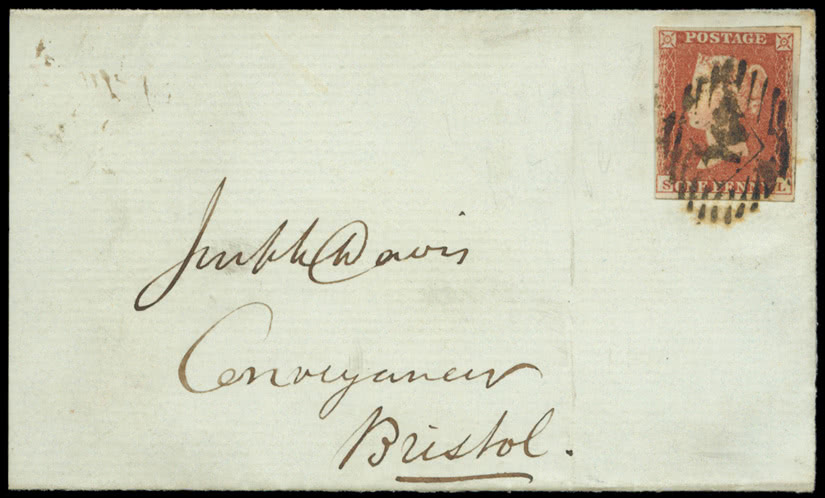 POSTAGE
S ONE PENNY L
Davis
Conveyancer
Bristol.